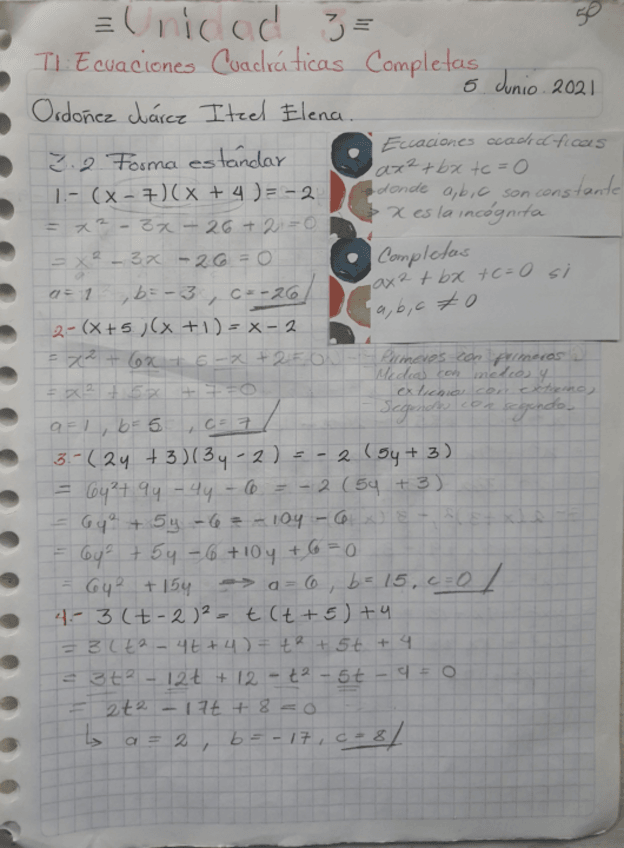 = Unidad 3 =
50
T1 Ecuaciones Cuadráticas Completas
5 Junio 2021
Ordoñez Juárez Itzel Elena.
3.2 Forma estándar
1.- (x - 7)(x + 4) = -2
= x² - 3x - 26 + 2 = 0
= x² - 3x - 26 = 0
a = 1 , b = -3 , c = -26
2- (x+5)(x+1) = x - 2
= x² + 6x + 5 - x + 2 = 0
= x² + 5x + 7 = 0
a = 1 , b = 5 , c = 7
3.- (2y + 3)(3y - 2) = -2 (5y + 3)
= 6y² + 9y - 4y - 6 = -2 (5y + 3)
= 6y² + 5y - 6 = -10y - 6
= 6y² + 5y - 6 + 10y + 6 = 0
= 6y² + 15y ⇒ a = 6 , b = 15 , c = 0
4.- 3 (t - 2)² = t (t + 5) + 4
= 3 (t² - 4t + 4) = t² + 5t + 4
= 3t² - 12t + 12 - t² - 5t - 4 = 0
= 2t² - 17t + 8 = 0
↳ a = 2 , b = -17 , c = 8
Ecuaciones cuadráticas
ax² + bx + c = 0
donde a, b, c son constante
x es la incógnita
Completas
ax² + bx + c = 0 si
a, b, c ≠ 0
- Primeros con primeros
- Medios con medios y
extremos con extremos,
- Segundos con segundo.